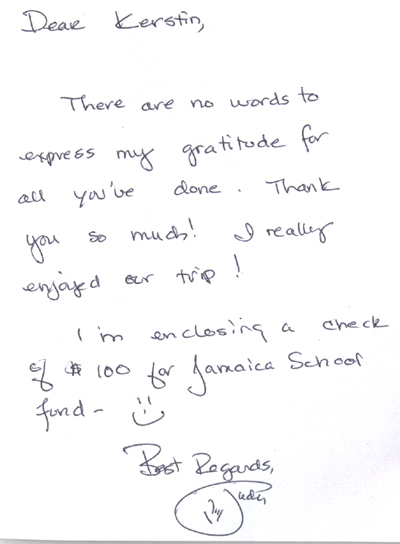 Dear Kerstin,
There are no words to
express my gratitude for
all you've done. Thank
you so much! I really
enjoyed our trip!
I'm enclosing a check
of $100 for Jamaica School
fund -
Best Regards,
Judy